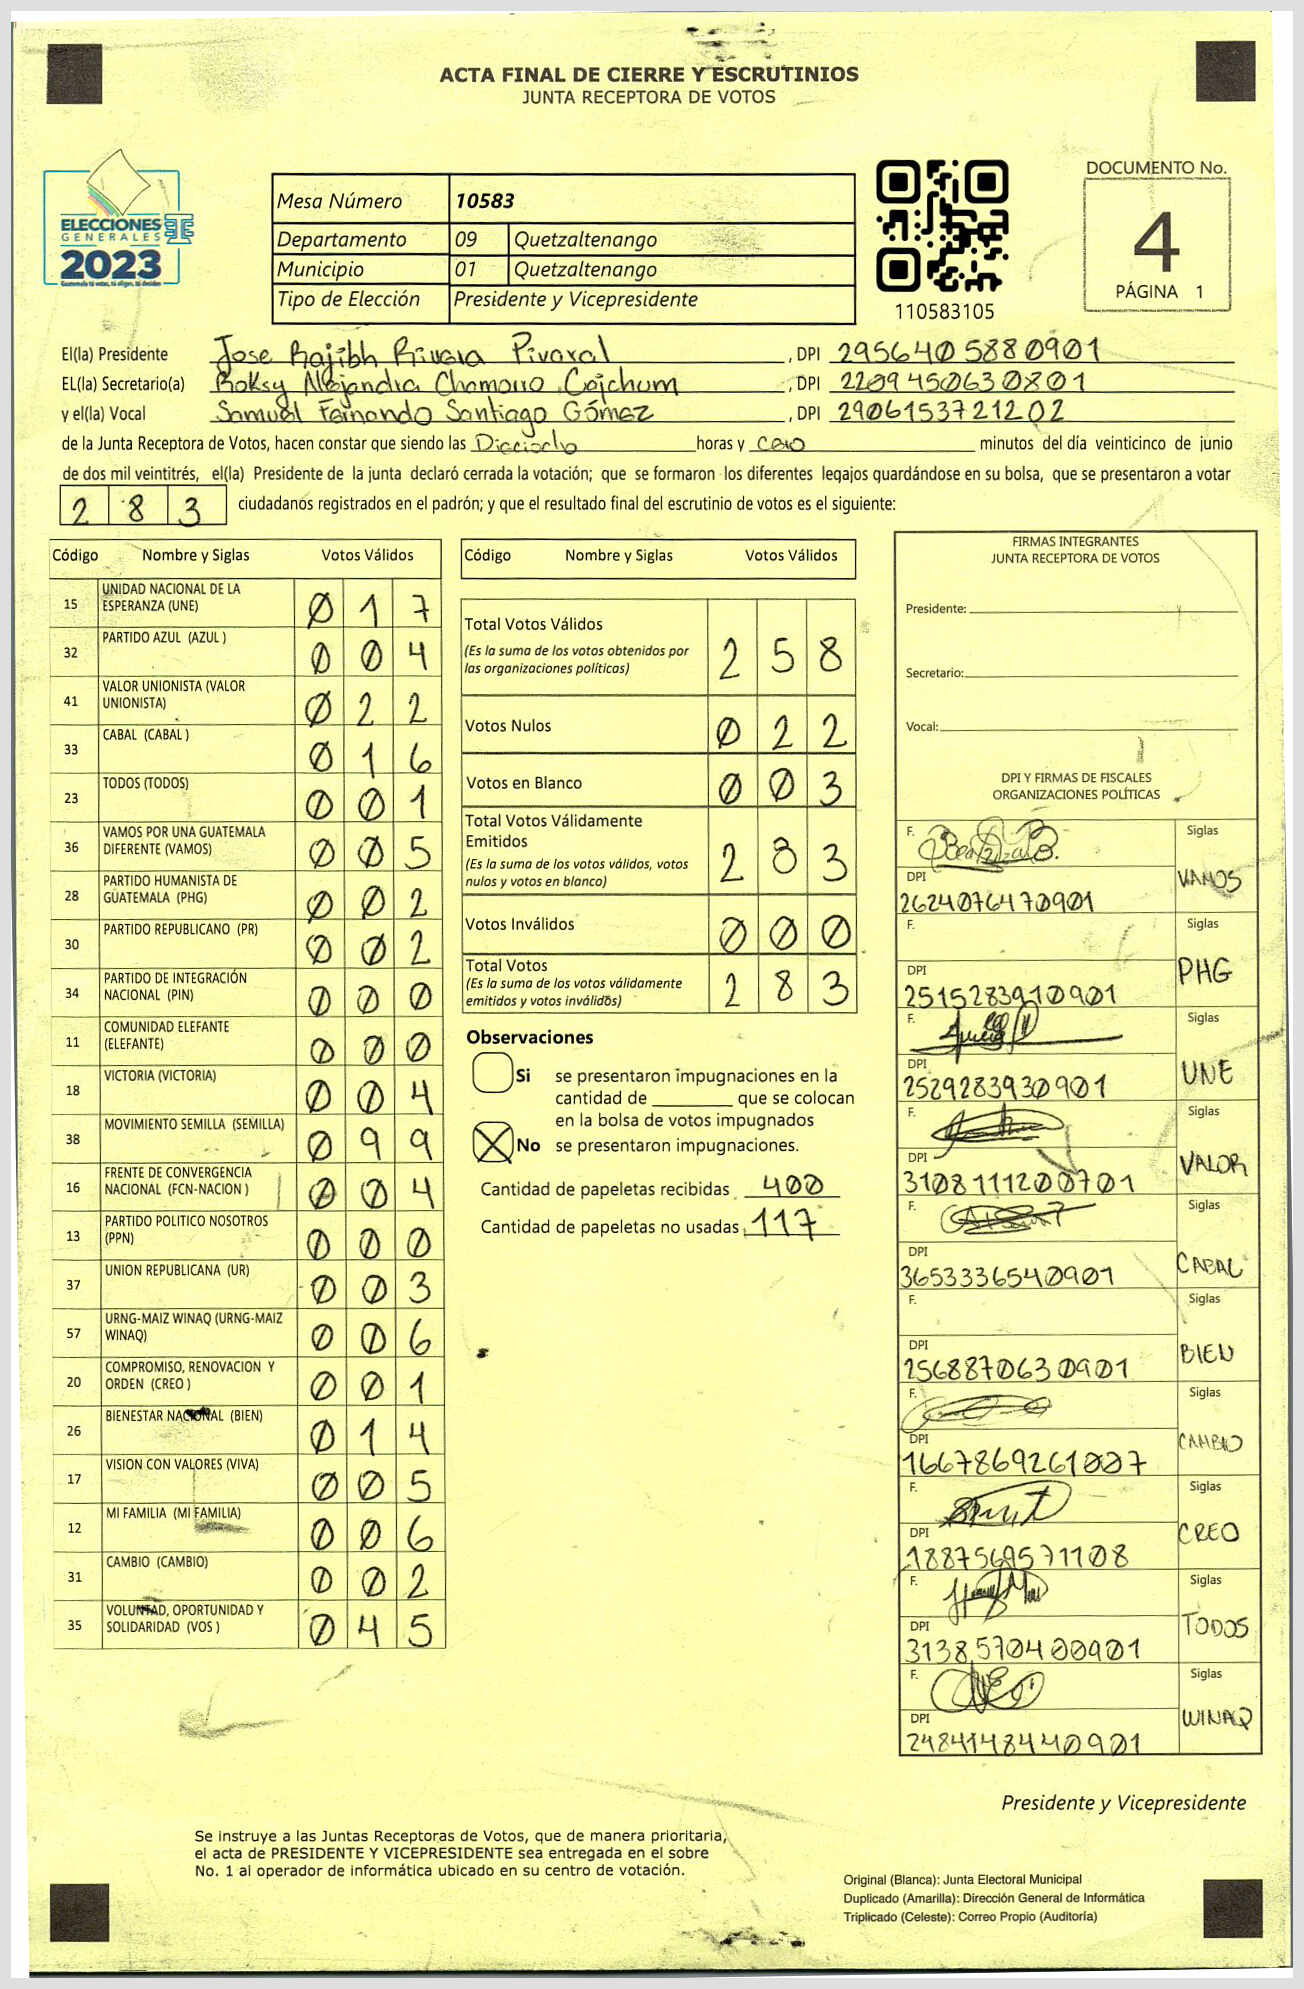 ACTA FINAL DE CIERRE Y ESCRUTINIOS
JUNTA RECEPTORA DE VOTOS
ELECCIONES
GENERALES
2023
Guatemala tú votas, tú eliges, tú decides
Mesa Número 10583
Departamento 09 Quetzaltenango
Municipio 01 Quetzaltenango
Tipo de Elección Presidente y Vicepresidente
110583105
DOCUMENTO No.
4
PÁGINA 1
El(la) Presidente Jose Rajibh Rivera Pivaral, DPI 2956405880901
EL(la) Secretario(a) Roksy Alejandra Chamorro Cojchum, DPI 2209450630801
y el(la) Vocal Samuel Fernando Santiago Gómez, DPI 2906153721202
de la Junta Receptora de Votos, hacen constar que siendo las Dieciocho horas y cero minutos del día veinticinco de junio
de dos mil veintitrés, el(la) Presidente de la junta declaró cerrada la votación; que se formaron los diferentes legajos guardándose en su bolsa, que se presentaron a votar
283 ciudadanos registrados en el padrón; y que el resultado final del escrutinio de votos es el siguiente:
Código Nombre y Siglas Votos Válidos
15 UNIDAD NACIONAL DE LA ESPERANZA (UNE) 017
32 PARTIDO AZUL (AZUL ) 004
41 VALOR UNIONISTA (VALOR UNIONISTA) 022
33 CABAL (CABAL ) 016
23 TODOS (TODOS) 001
36 VAMOS POR UNA GUATEMALA DIFERENTE (VAMOS) 005
28 PARTIDO HUMANISTA DE GUATEMALA (PHG) 002
30 PARTIDO REPUBLICANO (PR) 002
34 PARTIDO DE INTEGRACIÓN NACIONAL (PIN) 000
11 COMUNIDAD ELEFANTE (ELEFANTE) 000
18 VICTORIA (VICTORIA) 004
38 MOVIMIENTO SEMILLA (SEMILLA) 099
16 FRENTE DE CONVERGENCIA NACIONAL (FCN-NACION ) 004
13 PARTIDO POLITICO NOSOTROS (PPN) 000
37 UNION REPUBLICANA (UR) 003
57 URNG-MAIZ WINAQ (URNG-MAIZ WINAQ) 006
20 COMPROMISO, RENOVACION Y ORDEN (CREO ) 001
26 BIENESTAR NACIONAL (BIEN) 014
17 VISION CON VALORES (VIVA) 005
12 MI FAMILIA (MI FAMILIA) 006
31 CAMBIO (CAMBIO) 002
35 VOLUNTAD, OPORTUNIDAD Y SOLIDARIDAD (VOS ) 045
Código Nombre y Siglas Votos Válidos
Total Votos Válidos 258
(Es la suma de los votos obtenidos por
las organizaciones políticas)
Votos Nulos 022
Votos en Blanco 003
Total Votos Válidamente
Emitidos 283
(Es la suma de los votos válidos, votos
nulos y votos en blanco)
Votos Inválidos 000
Total Votos 283
(Es la suma de los votos válidamente
emitidos y votos inválidos)
Observaciones
Si se presentaron impugnaciones en la
cantidad de ________ que se colocan
en la bolsa de votos impugnados
X No se presentaron impugnaciones.
Cantidad de papeletas recibidas 400
Cantidad de papeletas no usadas 117
FIRMAS INTEGRANTES
JUNTA RECEPTORA DE VOTOS
Presidente:
Secretario:
Vocal:
DPI Y FIRMAS DE FISCALES
ORGANIZACIONES POLÍTICAS
F. Siglas
DPI VAMOS
2624076470901
F. Siglas
DPI PHG
2515283910901
F. Siglas
DPI UNE
2529283930901
F. Siglas
DPI VALOR
3108111200701
F. Siglas
DPI CABAL
3653336540901
F. Siglas
DPI BIEN
2568870630901
F. Siglas
DPI CAMBIO
1667869261007
F. Siglas
DPI CREO
1887569571108
F. Siglas
DPI TODOS
3138570400901
F. Siglas
DPI WINAQ
2484148440901
Presidente y Vicepresidente
Se instruye a las Juntas Receptoras de Votos, que de manera prioritaria,
el acta de PRESIDENTE Y VICEPRESIDENTE sea entregada en el sobre
No. 1 al operador de informática ubicado en su centro de votación.
Original (Blanca): Junta Electoral Municipal
Duplicado (Amarilla): Dirección General de Informática
Triplicado (Celeste): Correo Propio (Auditoría)